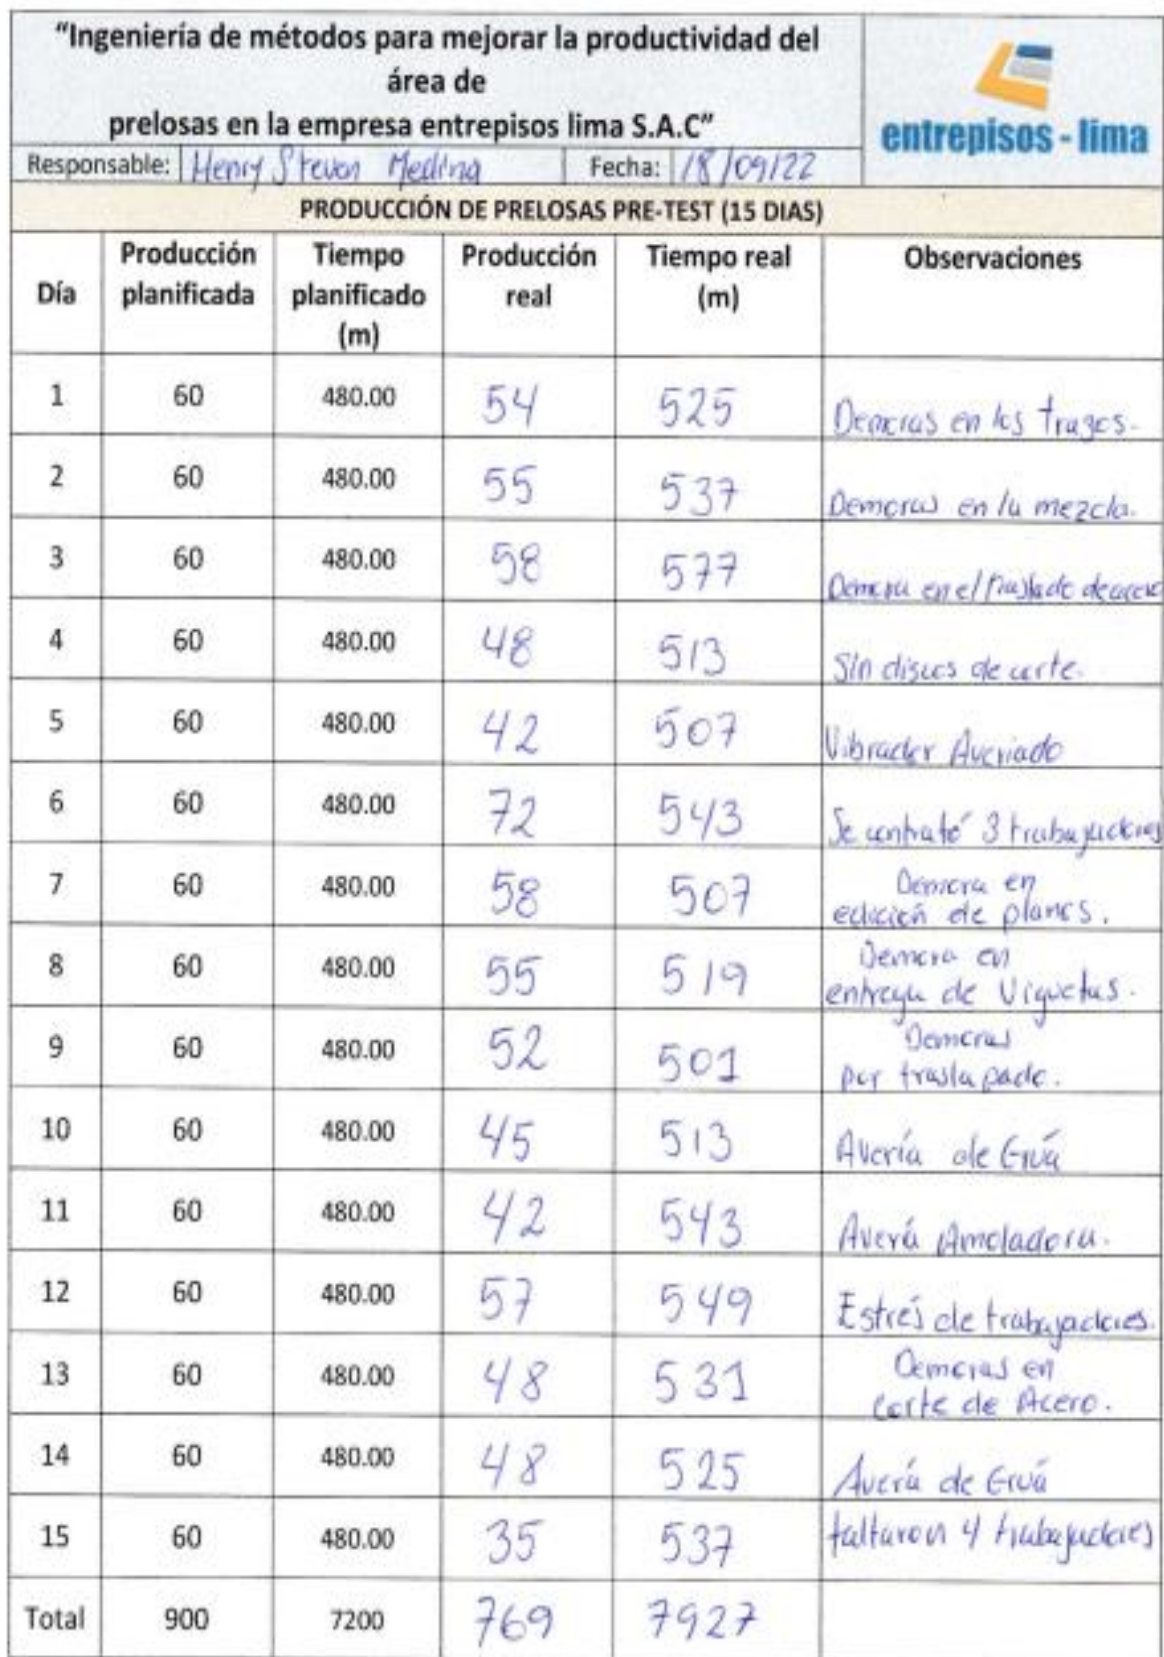 “Ingeniería de métodos para mejorar la productividad del
área de
prelosas en la empresa entrepisos lima S.A.C”
entrepisos - lima
Responsable: Henry Steven Medina Fecha: 18/09/22
PRODUCCIÓN DE PRELOSAS PRE-TEST (15 DIAS)
Día Producción planificada Tiempo planificado (m) Producción real Tiempo real (m) Observaciones
1 60 480.00 54 525 Demoras en los trazos.
2 60 480.00 55 537 Demoras en la mezcla.
3 60 480.00 58 577 Demora en el traslado de acero
4 60 480.00 48 513 Sin discos de corte.
5 60 480.00 42 507 Vibrador Averiado
6 60 480.00 72 543 Se contrató 3 trabajadores
7 60 480.00 58 507 Demora en
edición de planos.
8 60 480.00 55 519 Demora en
entrega de Viguetas.
9 60 480.00 52 501 Demoras
por traslapado.
10 60 480.00 45 513 Avería de Grúa
11 60 480.00 42 543 Avería Amoladora.
12 60 480.00 57 549 Estrés de trabajadores.
13 60 480.00 48 531 Demoras en
corte de Acero.
14 60 480.00 48 525 Avería de Grúa
15 60 480.00 35 537 faltaron 4 trabajadores
Total 900 7200 769 7927